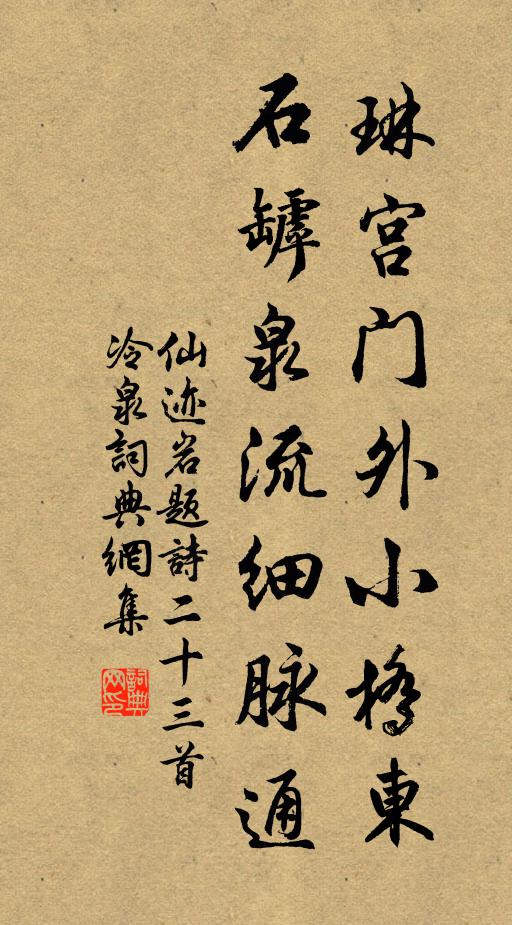 琳宫门外小橋東
石罅泉流细脉通
仙迹岩题詩二十三首
冷泉詞典網集
詞典
网印